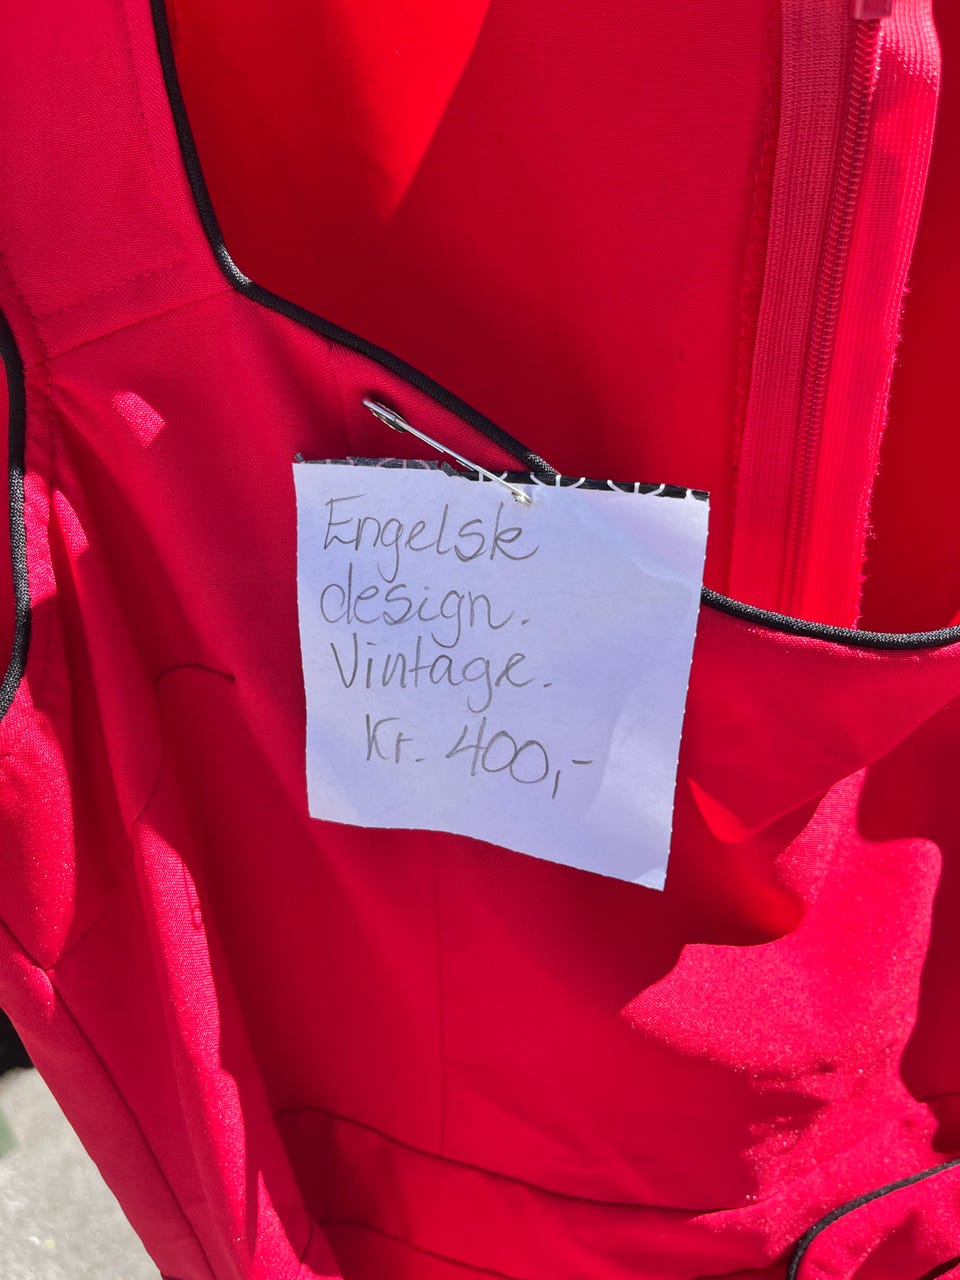 Engelsk
design.
Vintage.
Kr. 400,-